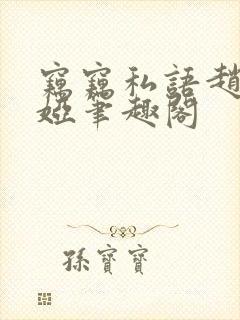 竊竊私語趙
婭筆趣閣
孫寶寶